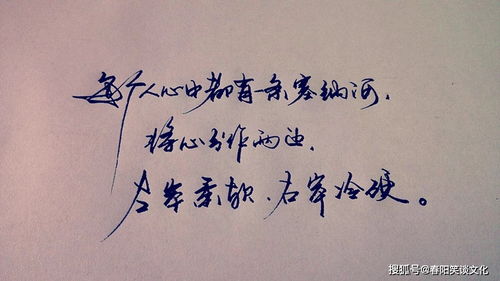 每个人心中都有一条塞纳河,
将心分作两边,
左岸柔软、右岸冷硬。
搜狐号@春阳笑谈文化